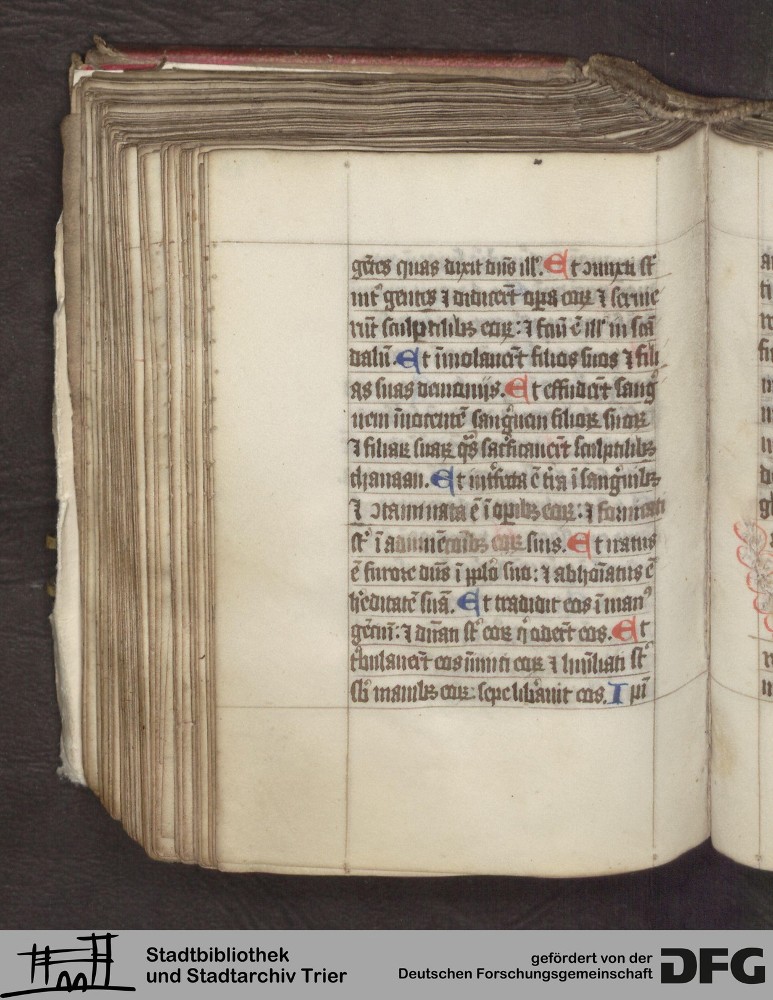 gētes quas dixit dn̄s ill'. Et ↄmixti st̄
int' gentes ⁊ didicer̄t op̄a eoꝝ ⁊ seruie
rūt sculptilibꝫ eoꝝ: ⁊ fc̄m ē ill' in scā
dalū. Et īmolauer̄t filios suos ⁊ fili
as suas demonijs. Et effuder̄t sang
uem īnocentē sanguinem filioꝝ suoꝝ
⁊ filiaꝝ suaꝝ q̄s sac̄ficauer̄t sculptilibꝫ
chanaan. Et int'fcta ē t'ra ī sanguibꝫ
⁊ ↄtaminata ē ī opibꝫ eoꝝ: ⁊ fornicati
st̄ ī adinuētōibꝫ eoꝝ suis. Et iratus
ē furore dn̄s ī pp̄lo suo: ⁊ abhoīatus ē
h'editatē suā. Et tradidit eos ī man⁹
gētiū: ⁊ dn̄ati st̄ eoꝝ q̄ oder̄t eos. Et
t'bulauer̄t eos īimici eoꝝ ⁊ hūiliati st̄
sb̄ manibꝫ eoꝝ: sepe lib'auit eos. Ipī
Stadtbibliothek
und Stadtarchiv Trier
gefördert von der
Deutschen Forschungsgemeinschaft DFG